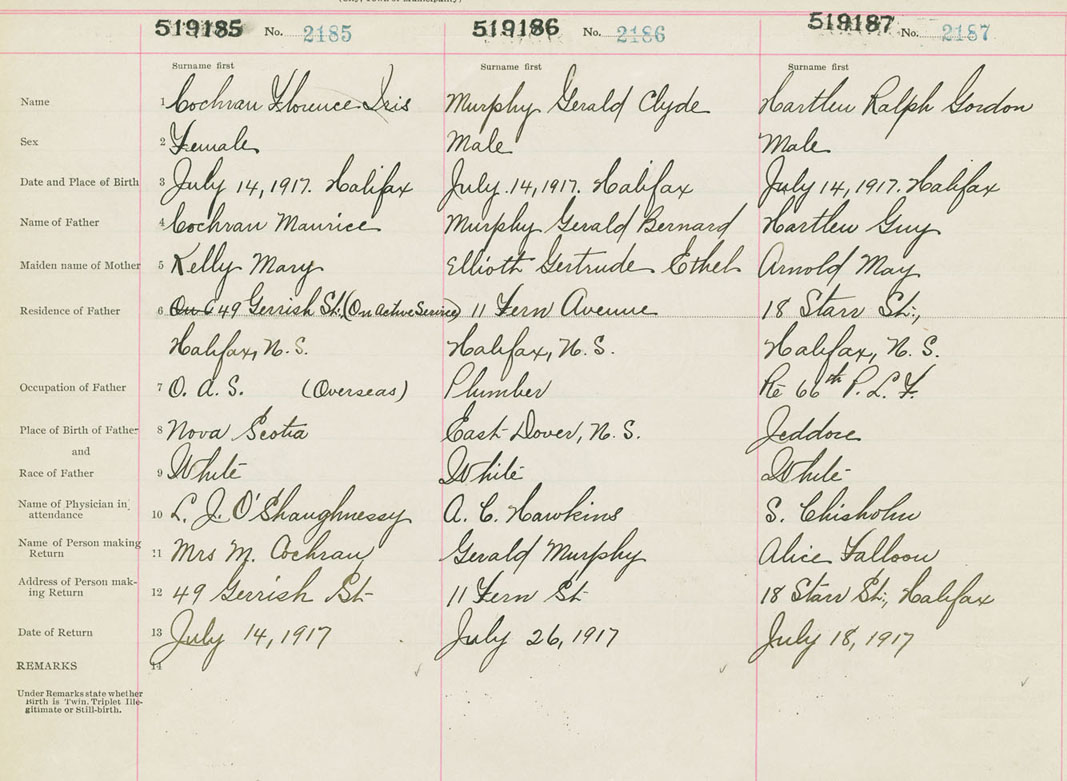 519185 No. 2185 519186 No. 2186 519187 No. 2187
Surname first Surname first Surname first
Name 1 Cochran Florence Iris Murphy Gerald Clyde Hartlen Ralph Gordon
Sex 2 Female Male Male
Date and Place of Birth 3 July 14, 1917. Halifax July 14, 1917. Halifax July 14, 1917. Halifax
Name of Father 4 Cochran Maurice Murphy Gerald Bernard Hartlen Guy
Maiden name of Mother 5 Kelly Mary Elliott Gertrude Ethel Arnold May
Residence of Father 6 49 Gerrish St. (On Active Service) 11 Fern Avenue 18 Starr St.,
Halifax, N.S. Halifax, N.S. Halifax, N.S.
Occupation of Father 7 O. A. S. (Overseas) Plumber 66th P. L. F.
Place of Birth of Father 8 Nova Scotia East Dover, N.S. Jeddore
and
Race of Father 9 White White White
Name of Physician in
attendance 10 L. J. O'Shaughnessy A. C. Hawkins S. Chisholm
Name of Person making
Return 11 Mrs M. Cochran Gerald Murphy Alice Falloon
Address of Person mak-
ing Return 12 49 Gerrish St 11 Fern St 18 Starr St., Halifax
Date of Return 13 July 14, 1917 July 26, 1917 July 18, 1917
REMARKS 14
Under Remarks state whether
Birth is Twin, Triplet Ille-
gitimate or Still-birth.